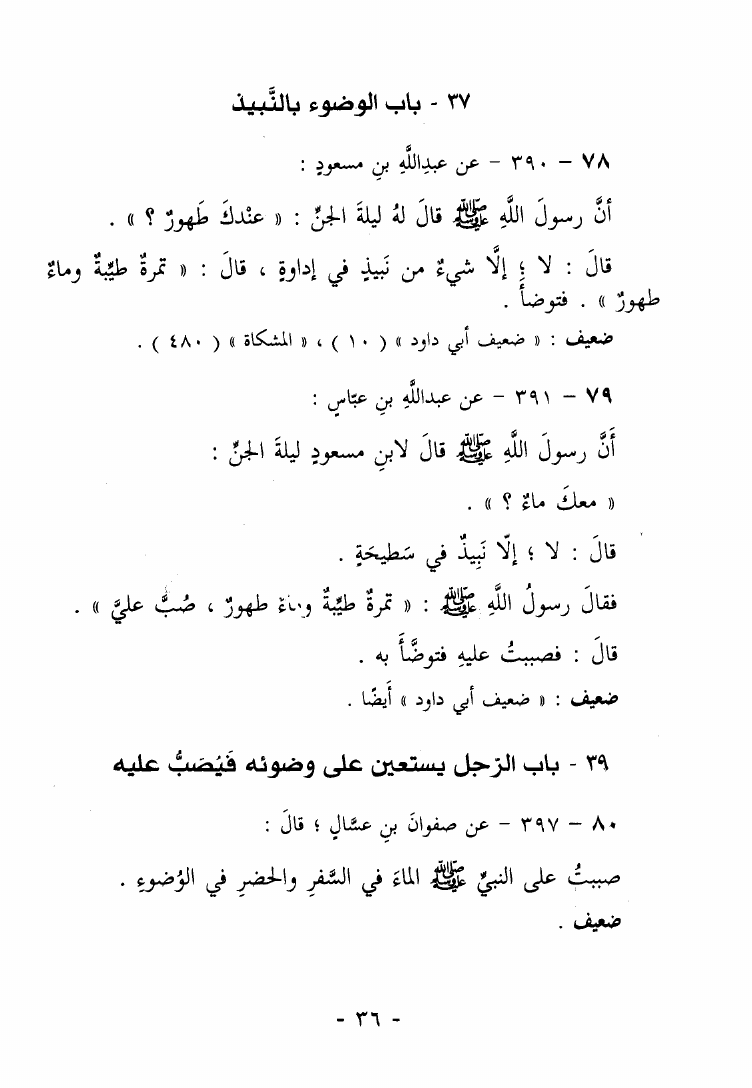 ٣٧ - باب الوضوء بالنَّبيذ
٧٨ – ٣٩٠ – عن عبدِاللَّهِ بنِ مسعودٍ :
أنَّ رسولَ اللَّهِ ﷺ قالَ لهُ ليلةَ الجنِّ : « عنْدكَ طَهورٌ ؟ » .
قالَ : لا ؛ إلَّا شيءٌ من نَبيذٍ في إداوةٍ ، قالَ : « تمرةٌ طيِّبةٌ وماءٌ
طهورٌ » . فتوضأَ .
ضعيف : « ضعيف أبي داود » ( ١٠ ) ، « المشكاة » ( ٤٨٠ ) .
٧٩ – ٣٩١ – عن عبداللَّهِ بنِ عبّاسٍ :
أَنَّ رسولَ اللَّهِ ﷺ قالَ لابنِ مسعودٍ ليلةَ الجنِّ :
« معكَ ماءٌ ؟ » .
قالَ : لا ؛ إلّا نَبِيذٌ في سَطيحَةٍ .
فقالَ رسولُ اللَّهِ ﷺ : « تمرةٌ طيِّبةٌ وماءٌ طهورٌ ، صُبَّ عليَّ » .
قالَ : فصببتُ عليهِ فتوضَّأَ به .
ضعيف : « ضعيف أبي داود » أَيضًا .
٣٩ - باب الرّجل يستعين على وضوئه فَيُصَبُّ عليه
٨٠ – ٣٩٧ – عن صفوانَ بنِ عسَّالٍ ؛ قالَ :
صببتُ على النبيِّ ﷺ الماءَ في السَّفرِ والحضرِ في الوُضوءِ .
ضعيف .
- ٣٦ -